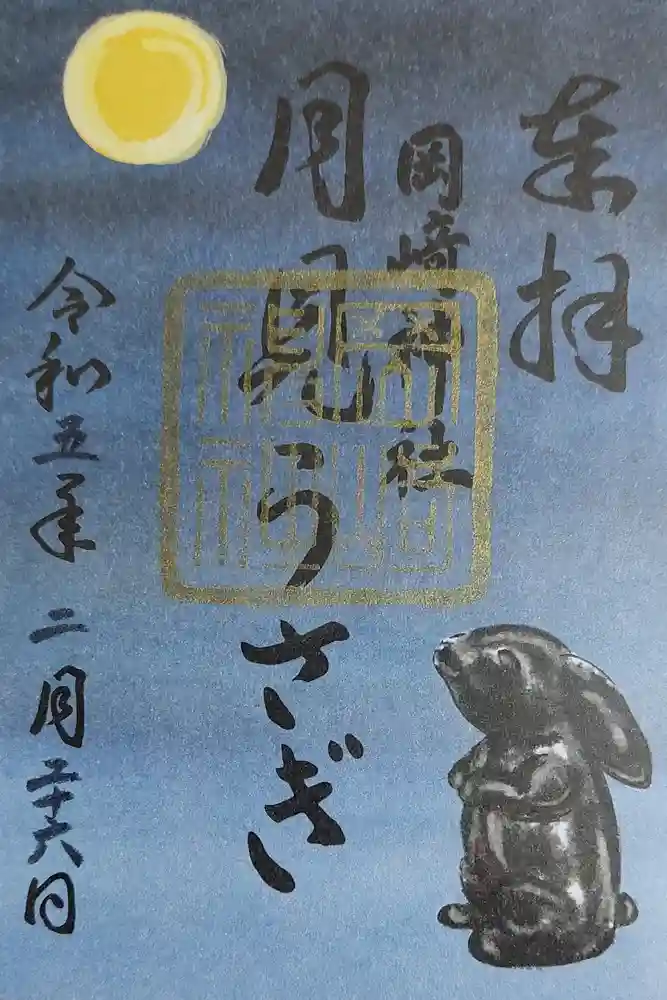 奉拝
岡崎神社
月見うさぎ
令和五年 二月二十六日
岡崎神社